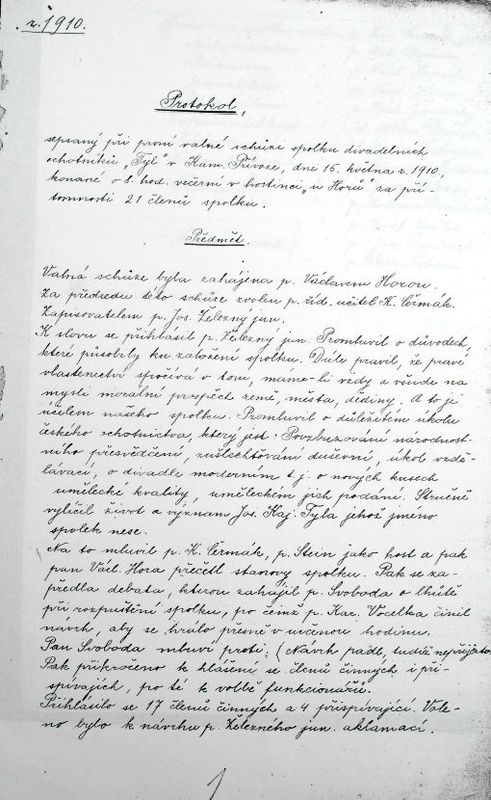 r. 1910.
Protokol,
sepsaný při první valné schůze spolku divadelních
ochotníků „Tyl" v Kam. Přívoze, dne 15. května r. 1910,
konané o 8. hod. večerní v hostinci „u Horů" za pří-
tomnosti 21 členů spolku.
Předmět.
Valná schůze byla zahájena p. Václavem Horou.
Za předsedu této schůze zvolen p. říd. učitel K. Čermák.
Zapisovatelem p. Jos. Železný jun.
K slovu se přihlásil p. Železný jun. Promluvil o důvodech,
které působily ku založení spolku. Dále pravil, že pravé
vlastenectví spočívá v tom, máme-li vždy a všude na
mysli morální prospěch země, města, dědiny. A to je
účelem našeho spolku. Promluvil o důležitém úkolu
českého ochotnictva, který jest: Povzbuzování národnost-
ního přesvědčení, zušlechťování duševní, úkol vzdě-
lávací, o divadle moderním t. j. o nových kusech
umělecké kvality, uměleckém jich podání. Stručně
vylíčil život a význam Jos. Kaj. Tyla jehož jméno
spolek nese.
Na to mluvil p. K. Čermák, p. Stein jako host a pak
pan Václ. Hora přečetl stanovy spolku. Pak se za-
předla debata, kterou zahájil p. Svoboda o lhůtě
při rozpuštění spolku, po čemž p. Kar. Vocelka činil
návrh, aby se hrálo přesně v určenou hodinu.
Pan Svoboda mluví proti. (Návrh padl, tudíž nepřijat.)
Pak přikročeno k hlášení se členů činných i při-
spívajících, po té k volbě funkcionářů.
Přihlásilo se 17 členů činných a 4 přispívající. Vole-
no bylo k návrhu p. Železného jun. aklamací.
1